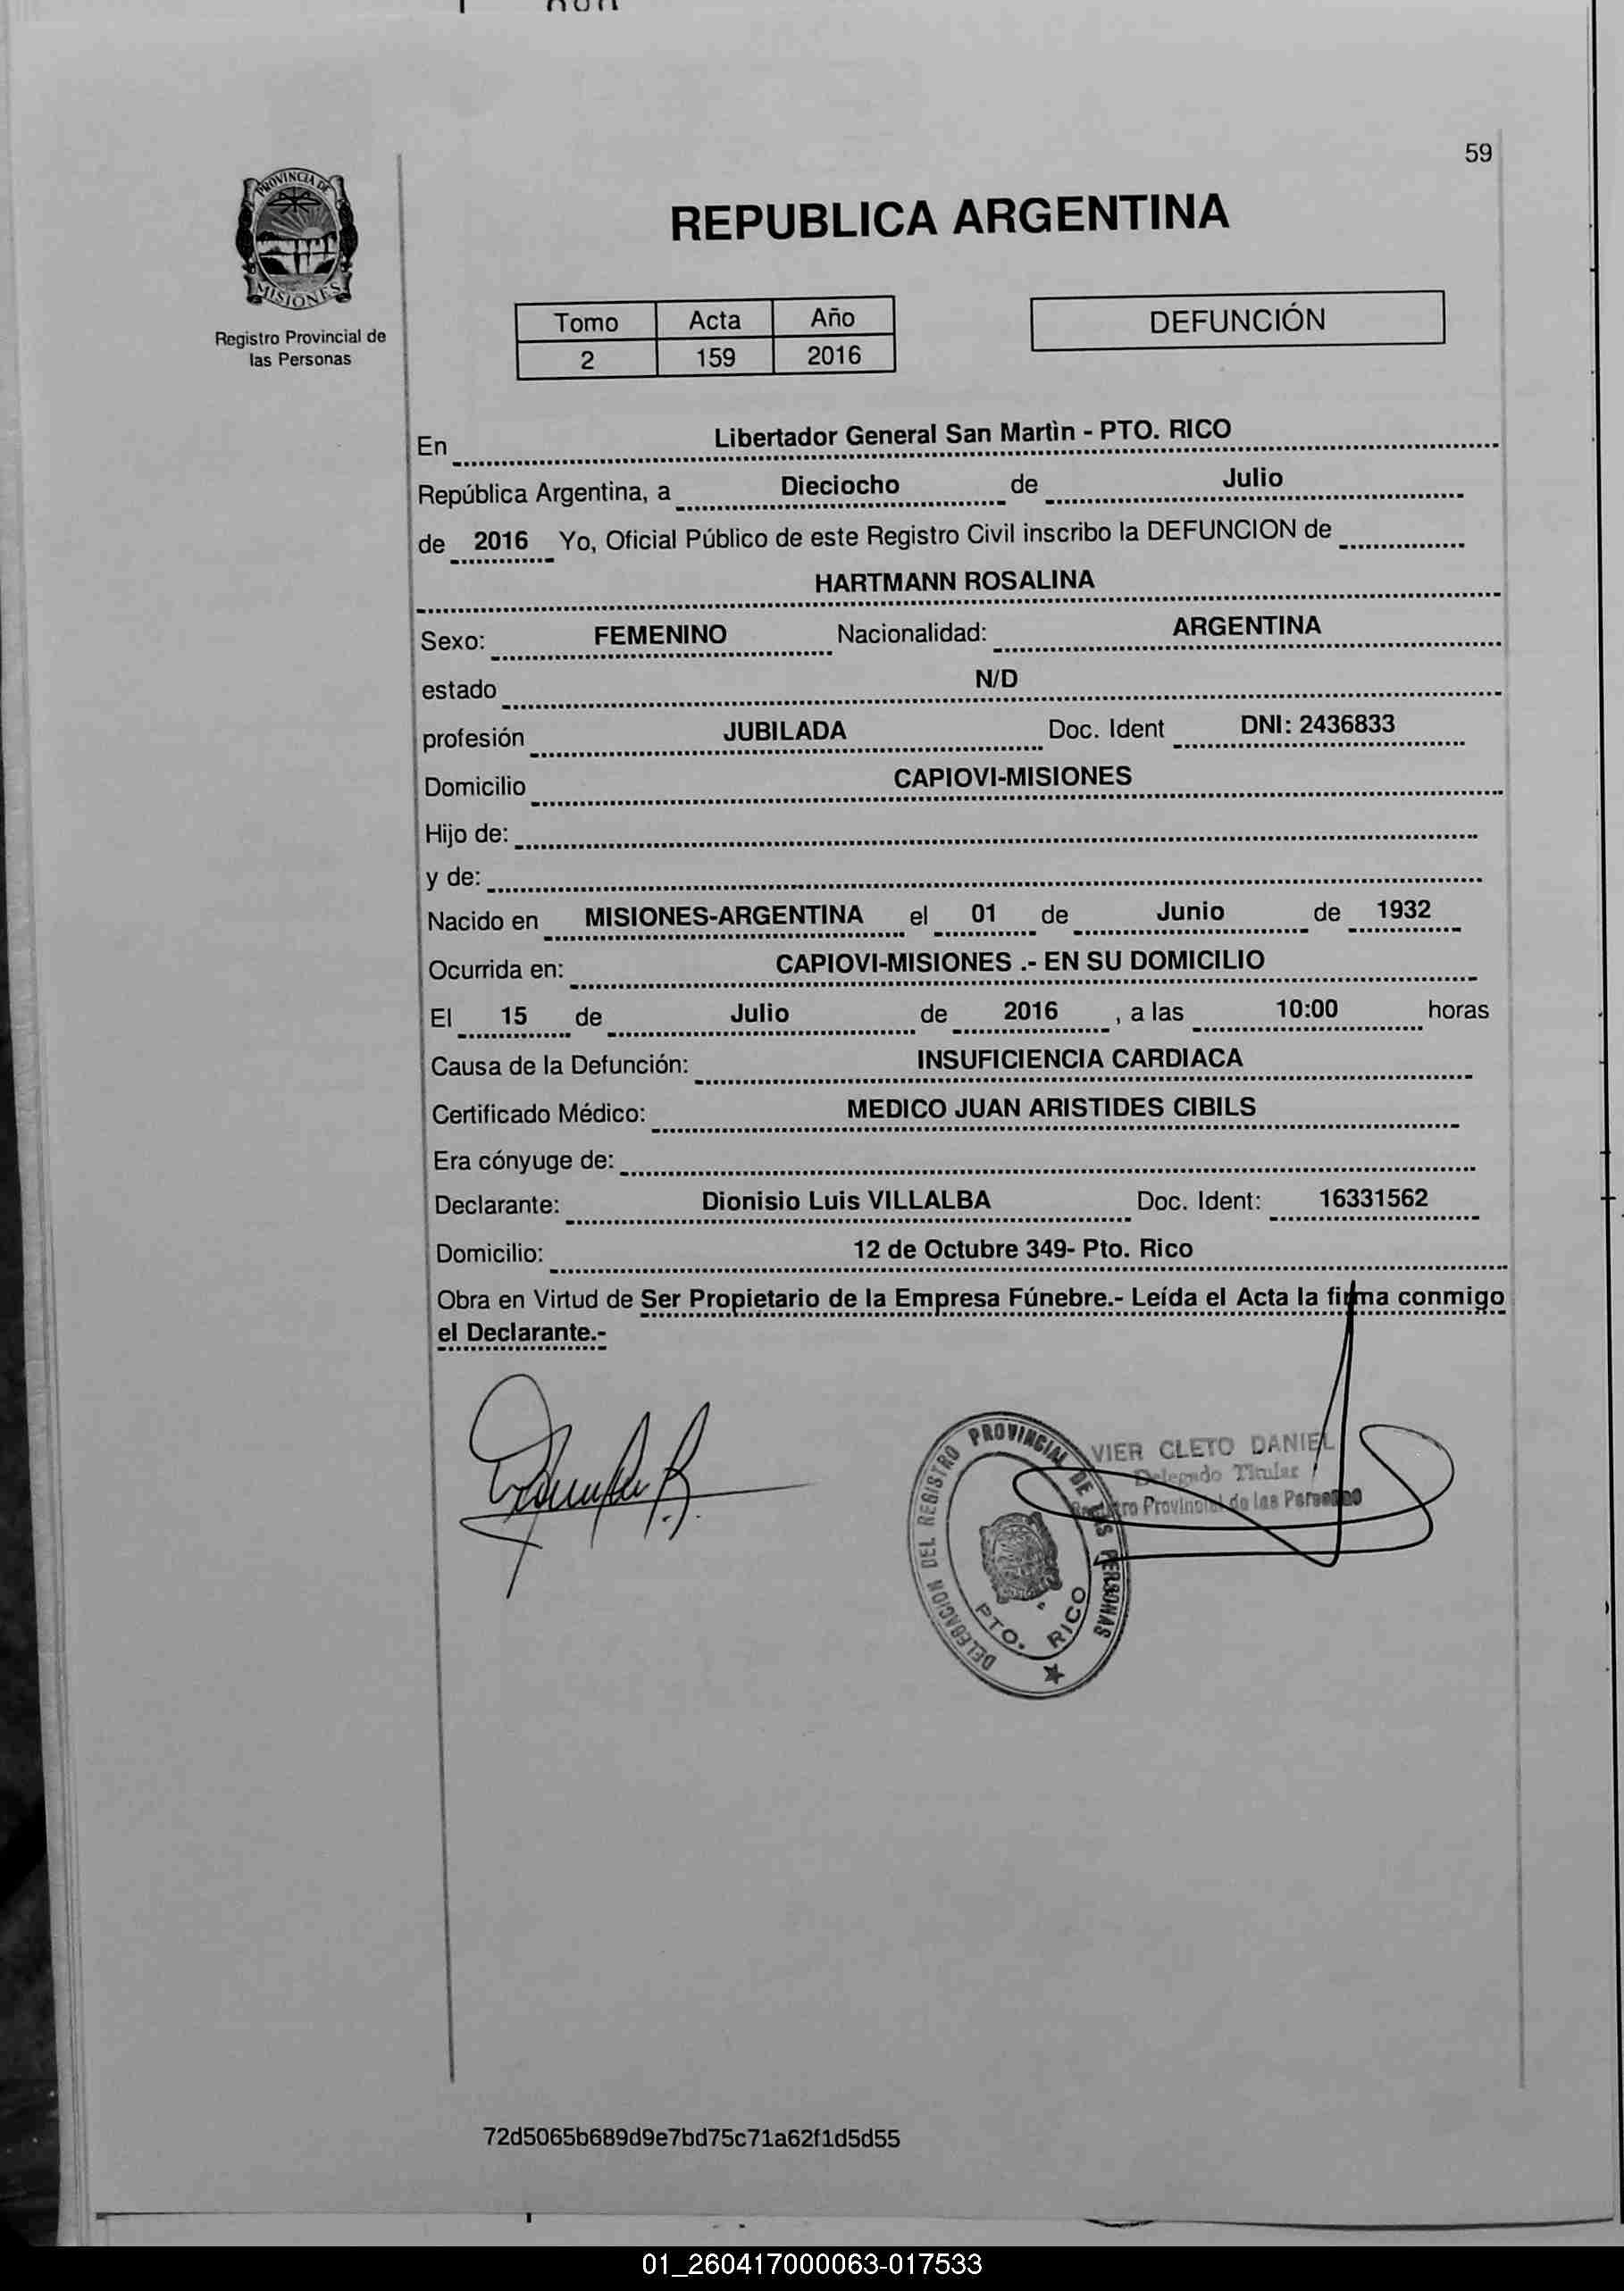 59
PROVINCIA DE
MISIONES
Registro Provincial de
las Personas
REPUBLICA ARGENTINA
Tomo Acta Año
2 159 2016
DEFUNCIÓN
En Libertador General San Martìn - PTO. RICO
República Argentina, a Dieciocho de Julio
de 2016 Yo, Oficial Público de este Registro Civil inscribo la DEFUNCION de
HARTMANN ROSALINA
Sexo: FEMENINO Nacionalidad: ARGENTINA
estado N/D
profesión JUBILADA Doc. Ident DNI: 2436833
Domicilio CAPIOVI-MISIONES
Hijo de:
y de:
Nacido en MISIONES-ARGENTINA el 01 de Junio de 1932
Ocurrida en: CAPIOVI-MISIONES .- EN SU DOMICILIO
El 15 de Julio de 2016 , a las 10:00 horas
Causa de la Defunción: INSUFICIENCIA CARDIACA
Certificado Médico: MEDICO JUAN ARISTIDES CIBILS
Era cónyuge de:
Declarante: Dionisio Luis VILLALBA Doc. Ident: 16331562
Domicilio: 12 de Octubre 349- Pto. Rico
Obra en Virtud de Ser Propietario de la Empresa Fúnebre.- Leída el Acta la firma conmigo
el Declarante.-
VIER CLETO DANIEL
Delegado Titular
Registro Provincial de las Personas
DELEGACION DEL REGISTRO PROVINCIAL DE LAS PERSONAS
PTO. RICO
72d5065b689d9e7bd75c71a62f1d5d55
01_260417000063-017533